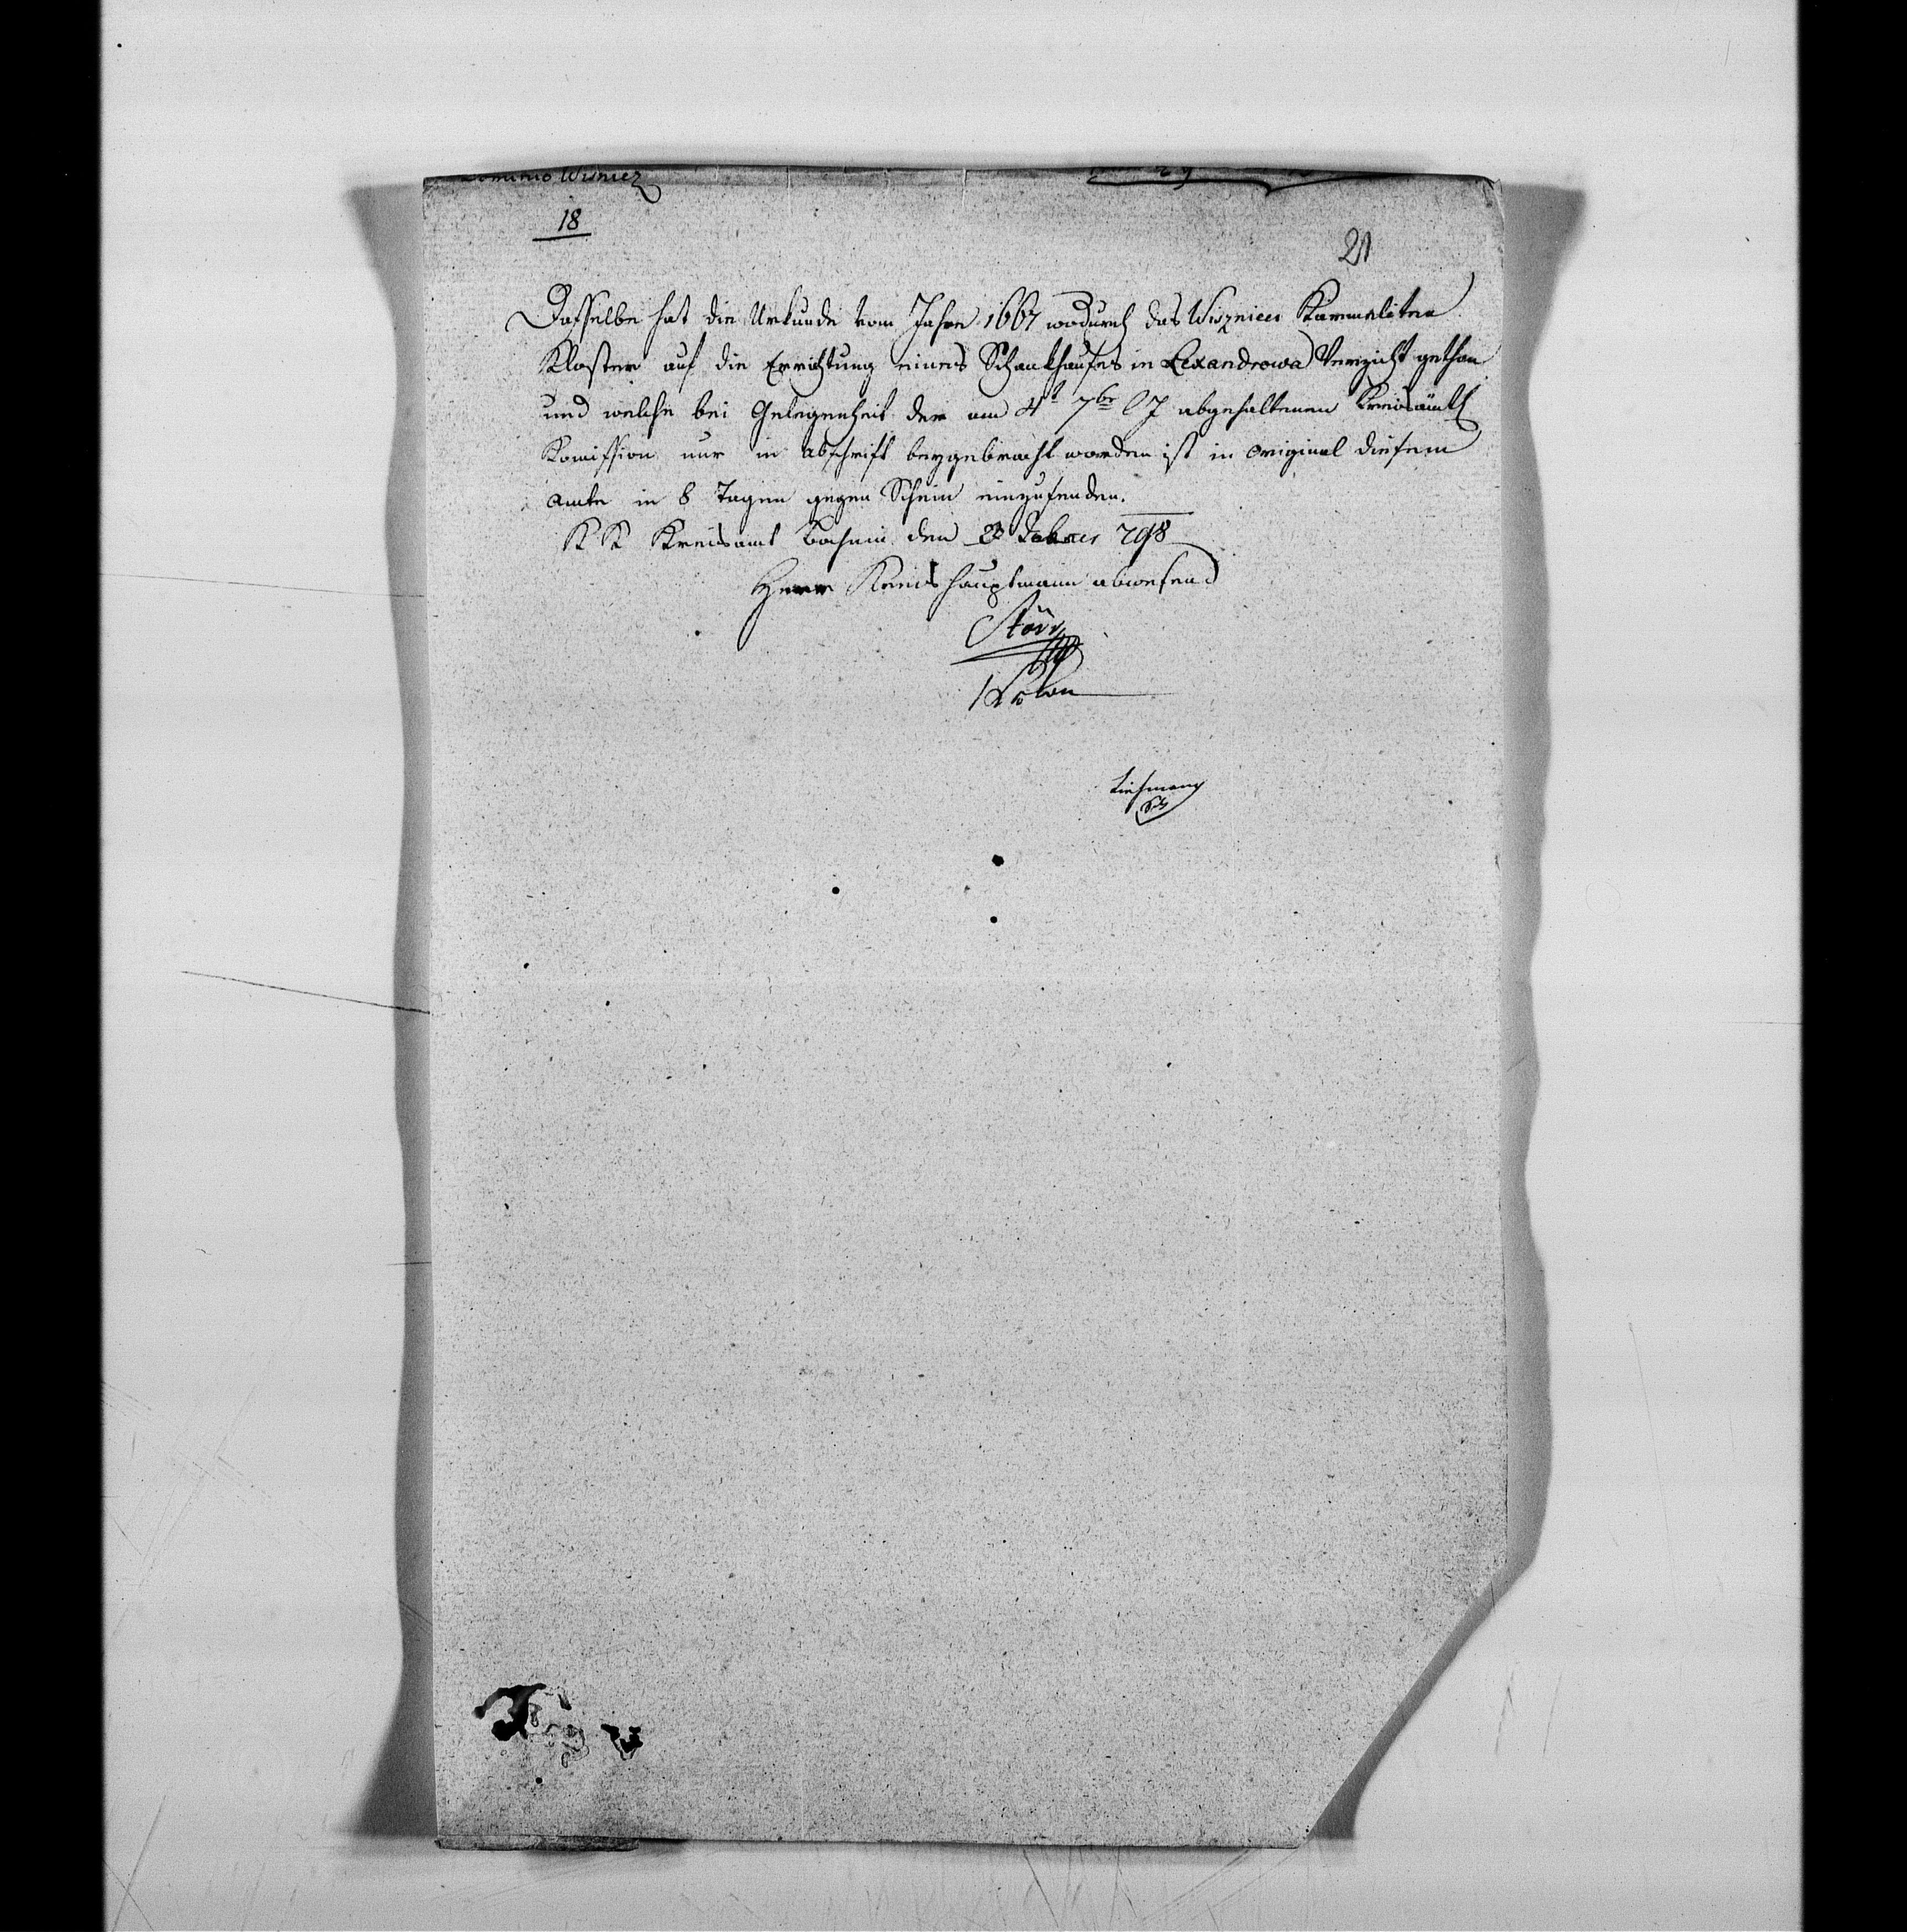 Dominio Wisnicz
18
21
Dasselbe hat die Urkunde vom Jahre 1667 wodurch das Wisznicer Karmeliter
Kloster auf die Errichtung eines Schankhauses in Lexandrowa Verzicht gethan
und welche bei Gelegenheit der am 4t 7br 97 abgehaltenen Kreisämtl
Komission nur in Abschrift beygebracht worden ist in Original diesem
Amte in 8 Tagen gegen Schein einzusenden.
K K Kreisamt Bochnia den 798
Herr Kreishauptmann abwesend